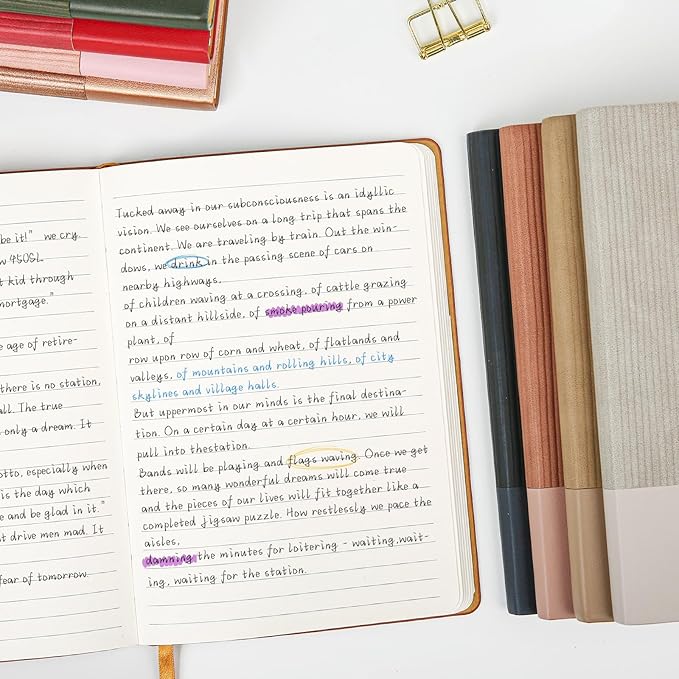 be it!" we cry.
w 450SL
t kid through
mortgage."
e age of retire-
there is no station,
all. The true
only a dream. It
otto, especially when
is the day which
e and be glad in it."
t drive men mad. It
fear of tomorrow.
Tucked away in our subconsciousness is an idyllic
vision. We see ourselves on a long trip that spans the
continent. We are traveling by train. Out the win-
dows, we drink in the passing scene of cars on
nearby highways.
of children waving at a crossing, of cattle grazing
on a distant hillside, of smoke pouring from a power
plant, of
row upon row of corn and wheat, of flatlands and
valleys, of mountains and rolling hills, of city
skylines and village halls.
But uppermost in our minds is the final destina-
tion. On a certain day at a certain hour, we will
pull into thestation.
Bands will be playing and flags waving. Once we get
there, so many wonderful dreams will come true
and the pieces of our lives will fit together like a
completed jigsaw puzzle. How restlessly we pace the
aisles,
damning the minutes for loitering - waiting,wait-
ing, waiting for the station.